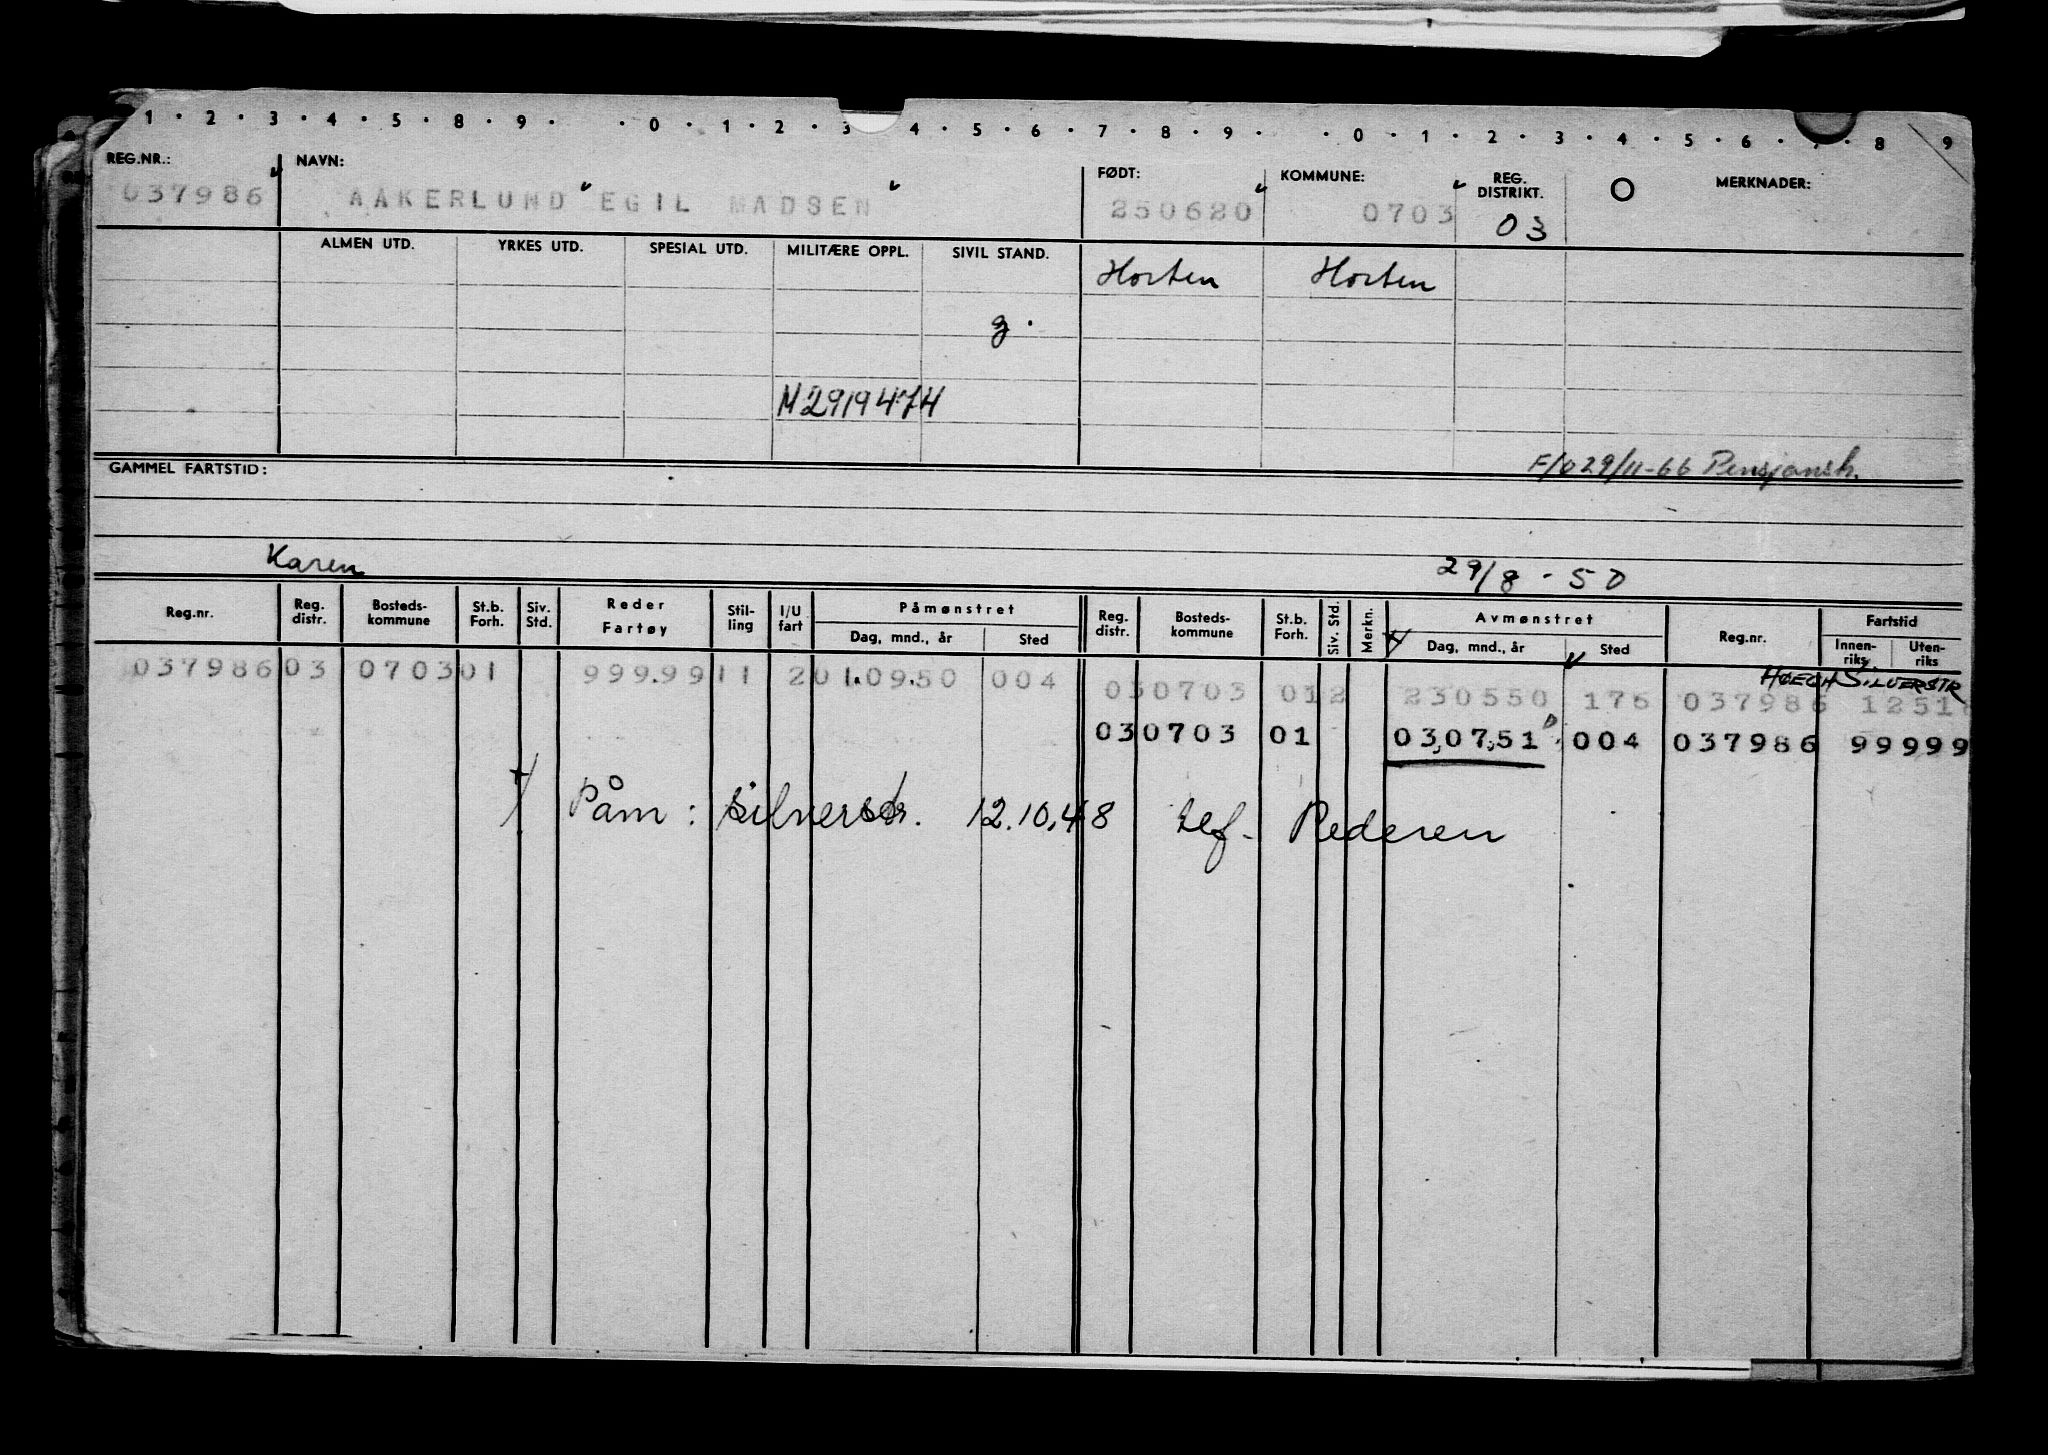 1 · 2 · 3 · 4 · 5 · 8 · 9 · · 0 · 1 · 2 · 3 · 4 · 5 · 6 · 7 · 8 · 9 · · 0 · 1 · 2 · 3 · 4 · 5 · 6 · 7 · 8 9
REG.NR.: NAVN: FØDT: KOMMUNE: REG. DISTRIKT. O MERKNADER:
037986 AAKERLUND EGIL MADSEN 250620 0703 03
ALMEN UTD. YRKES UTD. SPESIAL UTD. MILITÆRE OPPL. SIVIL STAND. Horten Horten
g.
M2919474
GAMMEL FARTSTID: F/o 29/11-66 Pensjonsh.
Karen 29/8 - 50
Reg.nr. Reg. distr. Bosteds-kommune St.b. Forh. Siv. Std. Reder Fartøy Stil-ling I/U fart Påmønstret Dag, mnd., år Sted Reg. distr. Bosteds-kommune St.b. Forh. Siv. Std. Merkn. Avmønstret Dag, mnd., år Sted Reg.nr. Fartstid Innen-riks Uten-riks
HØEGH SILVERSTR
037986 03 0703 01 999.99 11 2 01.09.50 004 03 0703 01 2 230550 176 037986 1251
03 0703 01 03,07,51 004 037986 99999
+/ Påm: Silverstr. 12.10.48 tlf- Rederen